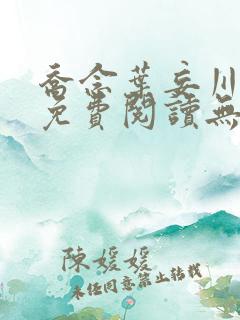 喬念葉妄川
免費閱讀無
陳媛媛
未經同意禁止轉載